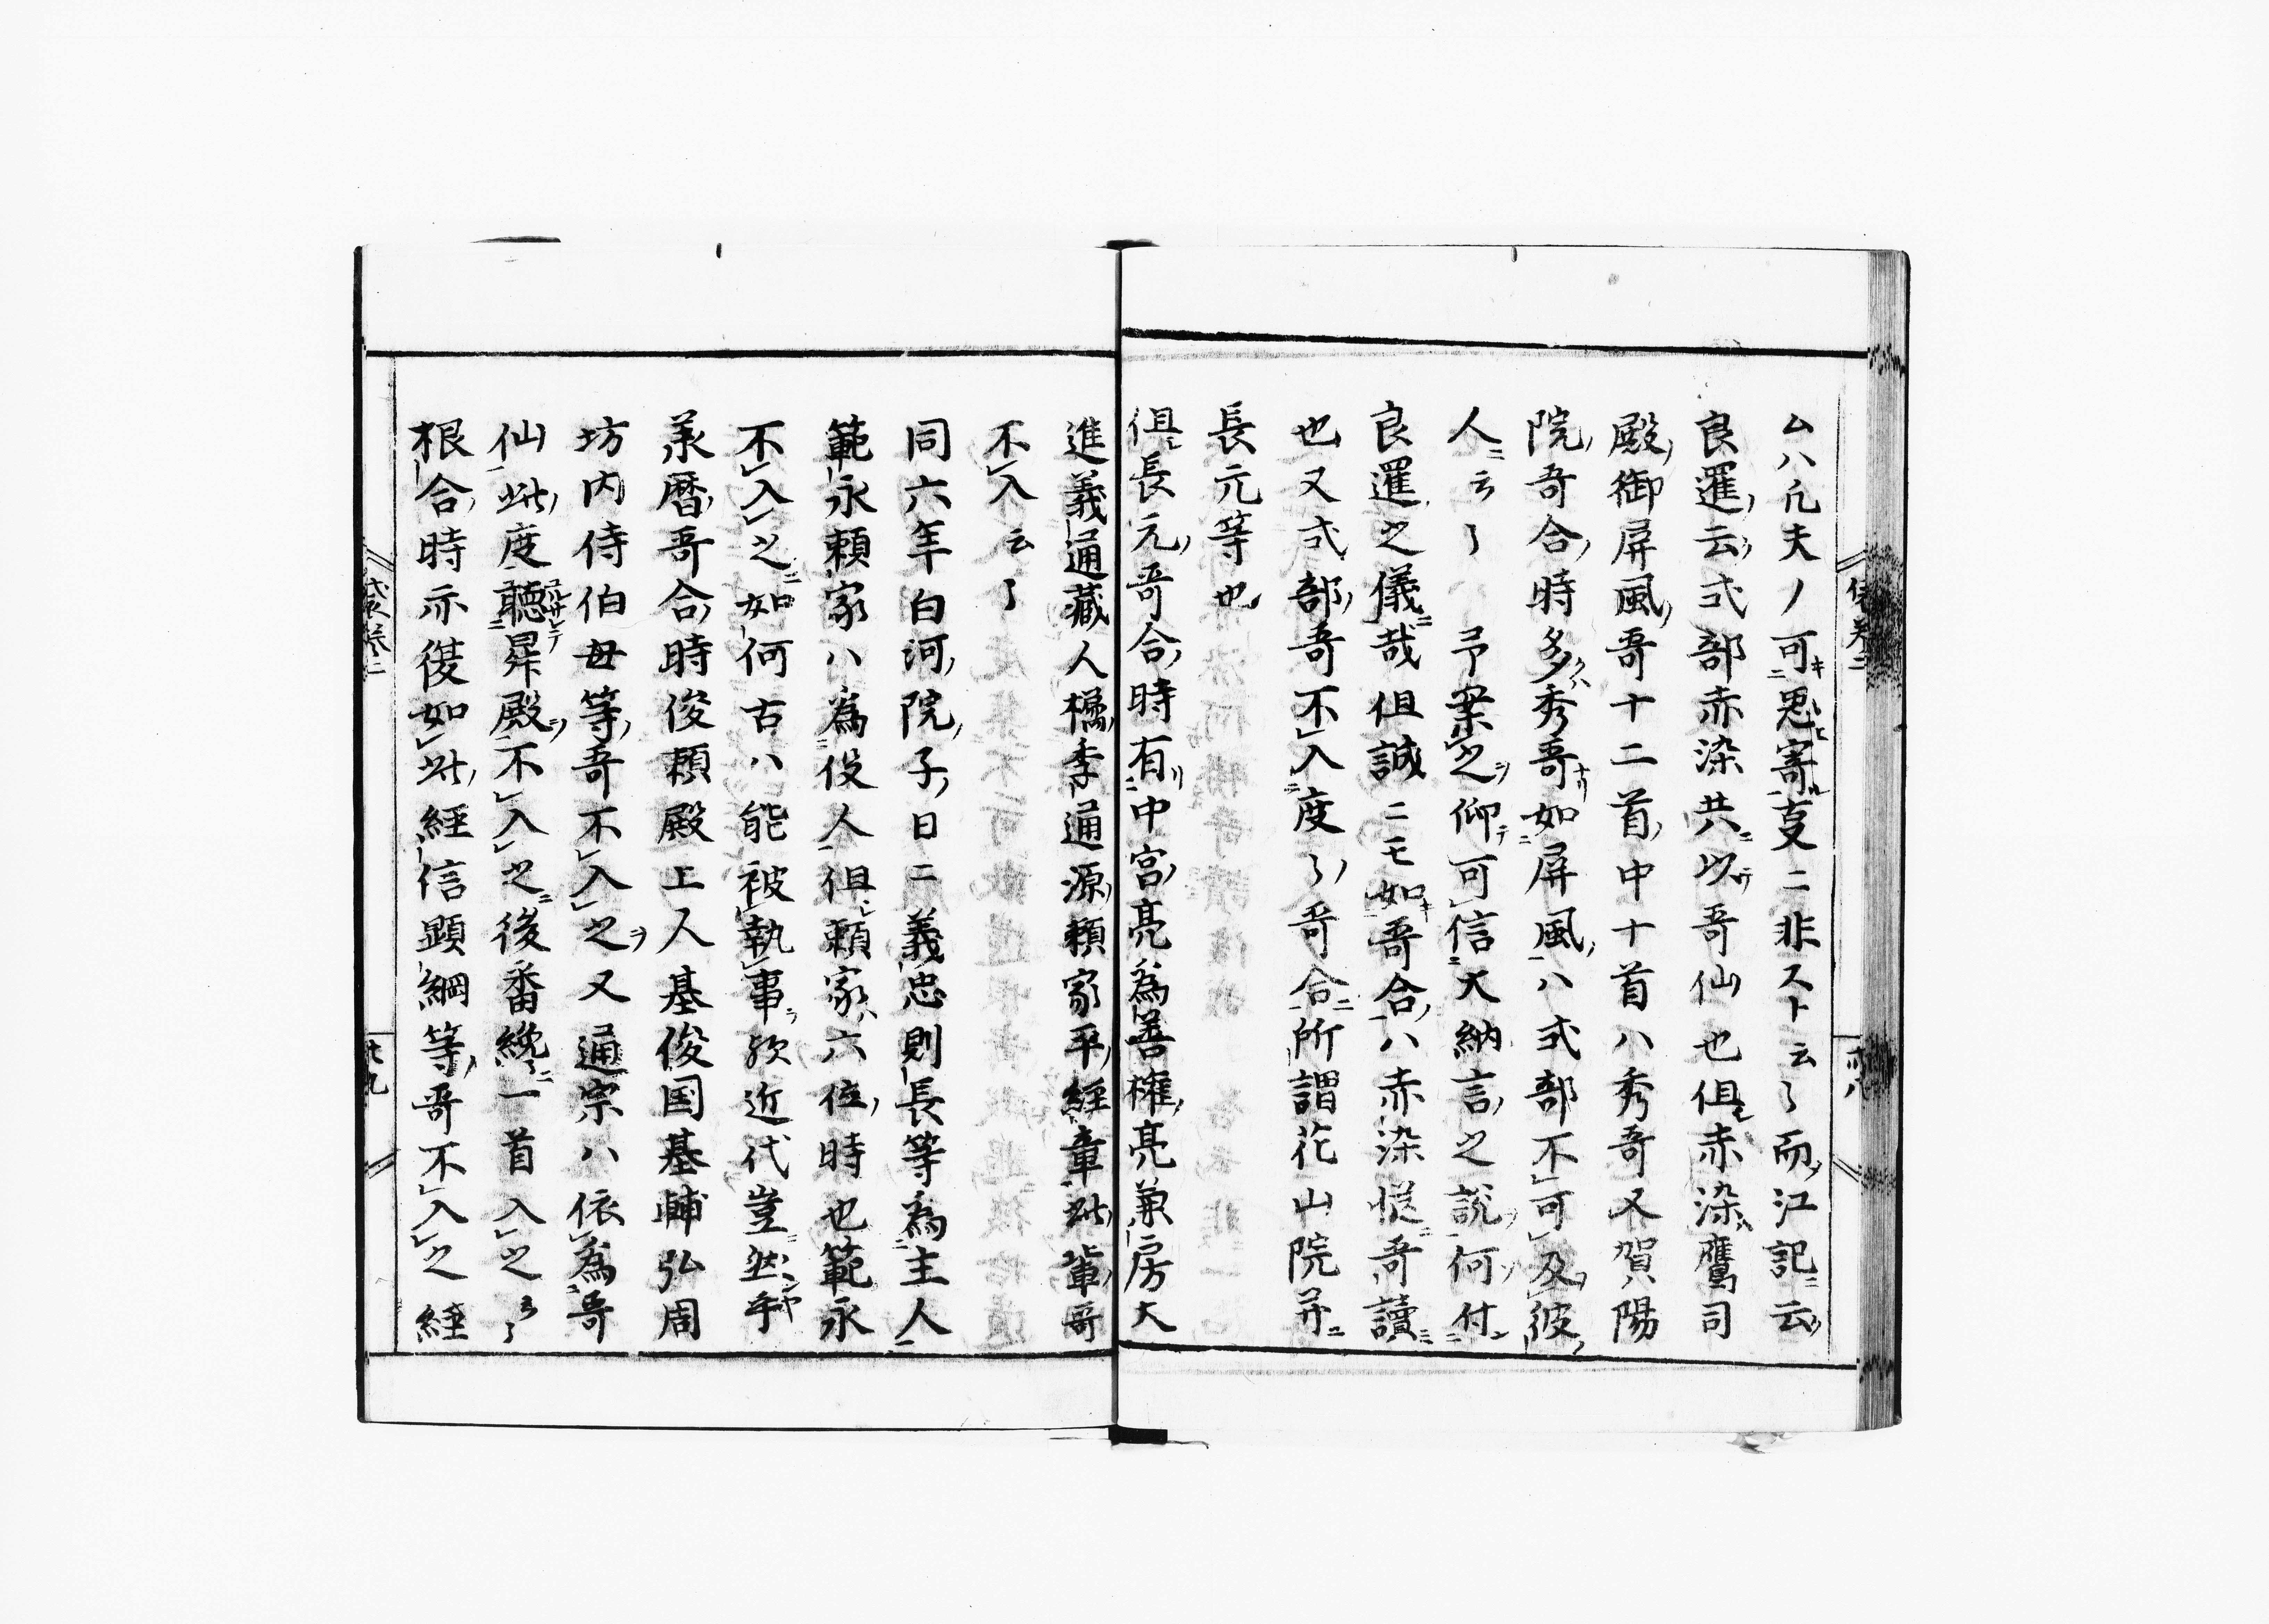 ムハ凡夫ノ可キ思ヒ寄ル支ニ非スト云々而江記ニ云
良暹云式部赤染共ニ以テ哥仙也但シ赤染ハ鷹司
殿御屏風哥十二首中十首ハ秀哥又賀陽
院哥合時多クハ秀哥ナリ如屏風ハ式部不可及彼
人ニ云々予案之ヲ仰テ可信大納言之説何付
良暹之儀ニ哉但誠ニモ如キ哥合ハ赤染㤨哥讀ニ
也又式部哥不入度々哥合ニ所謂花山院并
長元等也
但シ長元哥合時有リ中宮亮為善権亮兼房大
進義通蔵人橘季通源頼家平経章此輩哥
不入云々
同六年白河院子日ニ義忠則長等為主人
範永頼家ハ為役人但シ頼家ハ六位時也範永
不入之ニ如何古ハ能被執事ヲ歟近代豈然ンヤ乎
承暦哥合時俊頼殿上人基俊国基輔弘周
坊内侍伯母等哥不入之ヲ又通宗ハ依為哥
仙此度聴ユルサレテ昇殿ヲ不入之後番纔ニ一首入之云々
根合時亦俊如此経信顕綱等哥不入之経
袋巻二
廿八
袋巻二
廿九